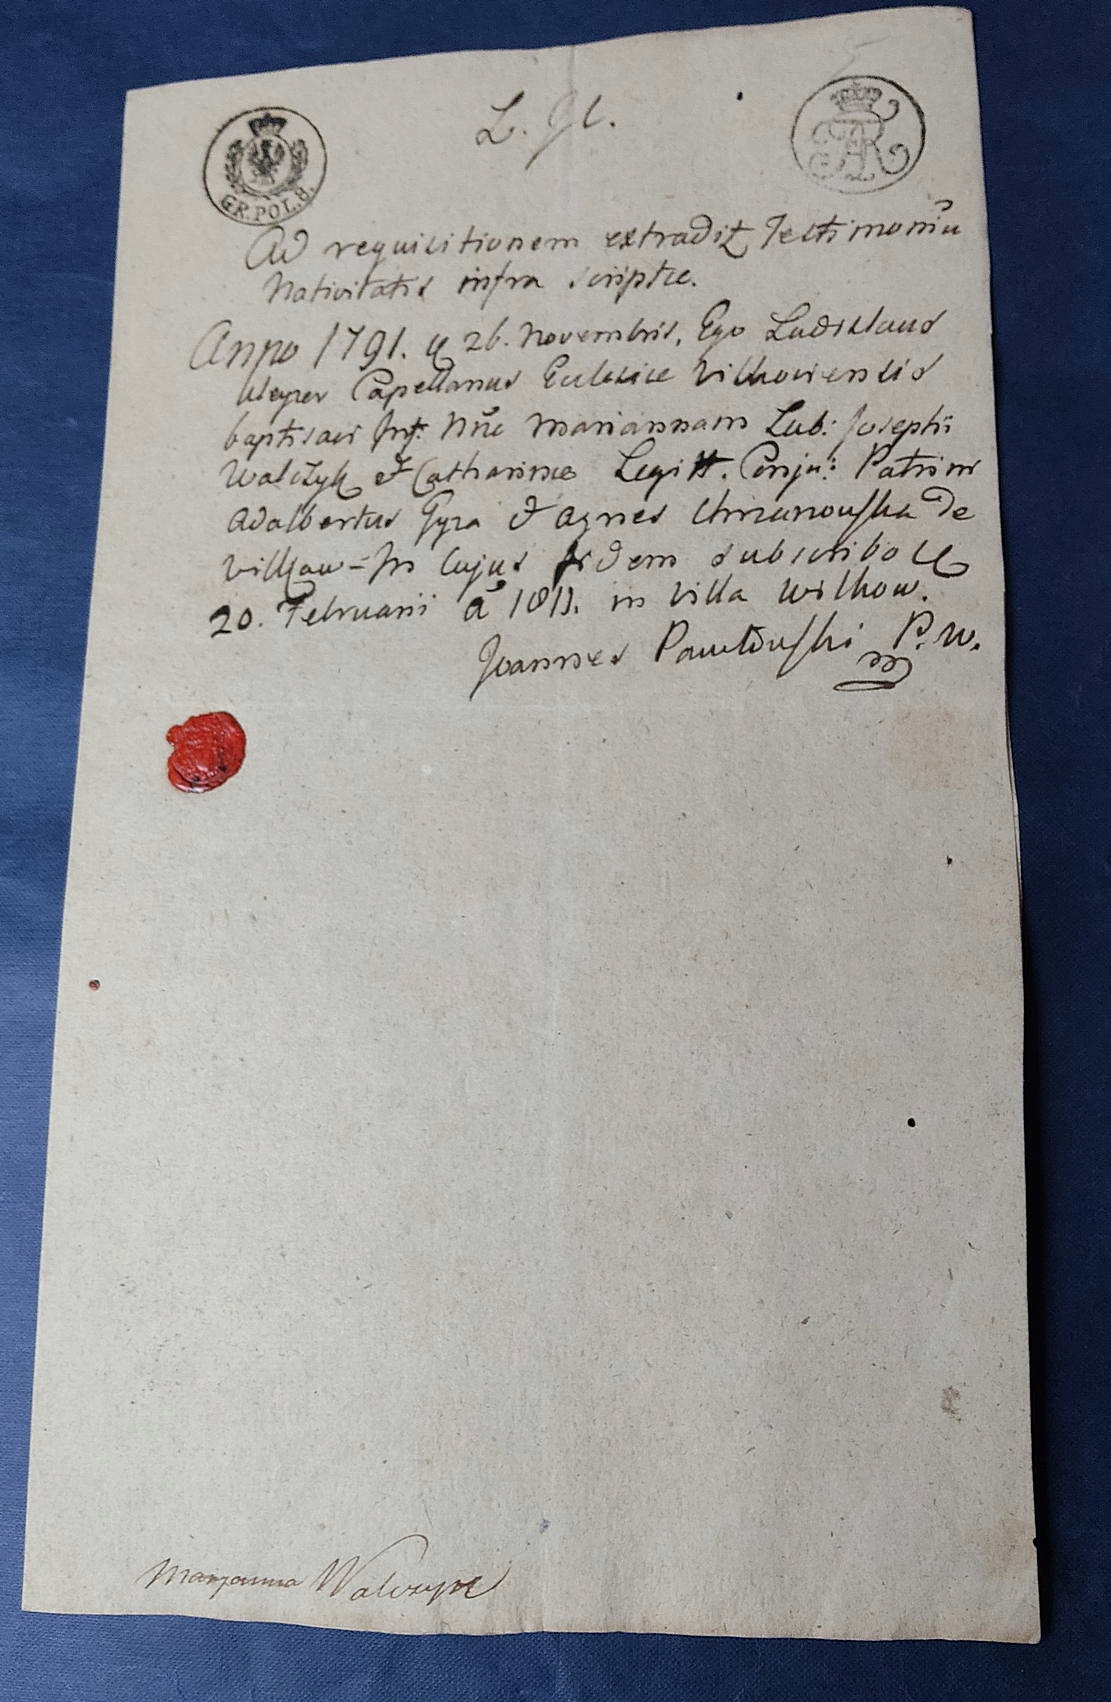 GR. POL. 8.
FAR
Ad requisitionem extradit Testimoniũ
Nativitatis infra scriptæ.
Anno 1791. 26. Novembris, Ego Ladislaus
Capellanus Eclesiæ Vilkoviensis
baptisavi Inf: Nñe Mariannam Lab: Josephi
Walczyk et Catharinæ Legitt. Conju: Patrini
Adalbertus Gyza et Agnes Chrzanowska de
Vilkow - In Cujus fidem subscribo
20. Februarii a 1811. in Villa Wilkow.
Joannes Pawłowski P. W.
mp
Maryanna Walczyk